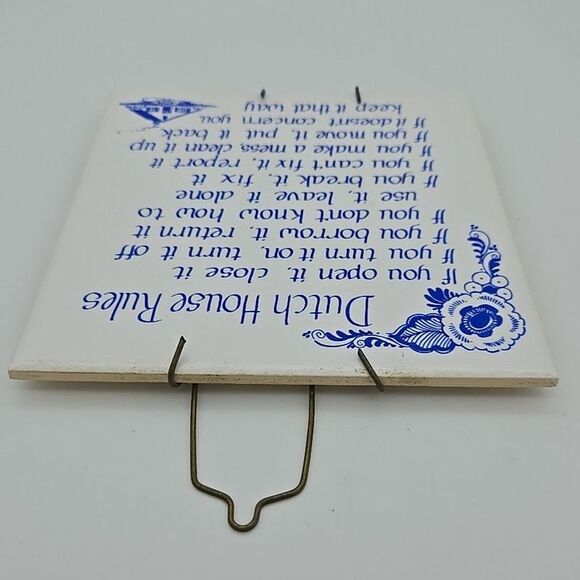 Dutch House Rules
If you open it, close it
If you turn it on, turn it off
If you borrow it, return it
If you don't know how to
use it, leave it alone
If you break it, fix it
If you can't fix it, report it
If you make a mess, clean it up
If you move it, put it back
If it doesn't concern you,
keep it that way